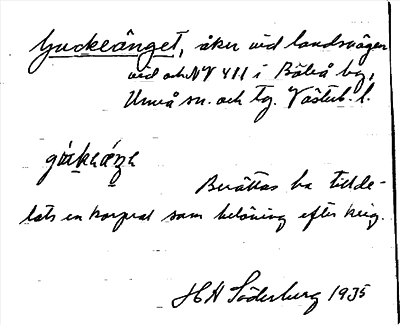 Guckeänget, åker vid landsvägen
vid och NV VIII i Böleå by,
Umeå sn. och tg. Västerb. l.
Berättas ha tillde-
lats en korpral som belöning efter krig.
H H Söderberg 1935